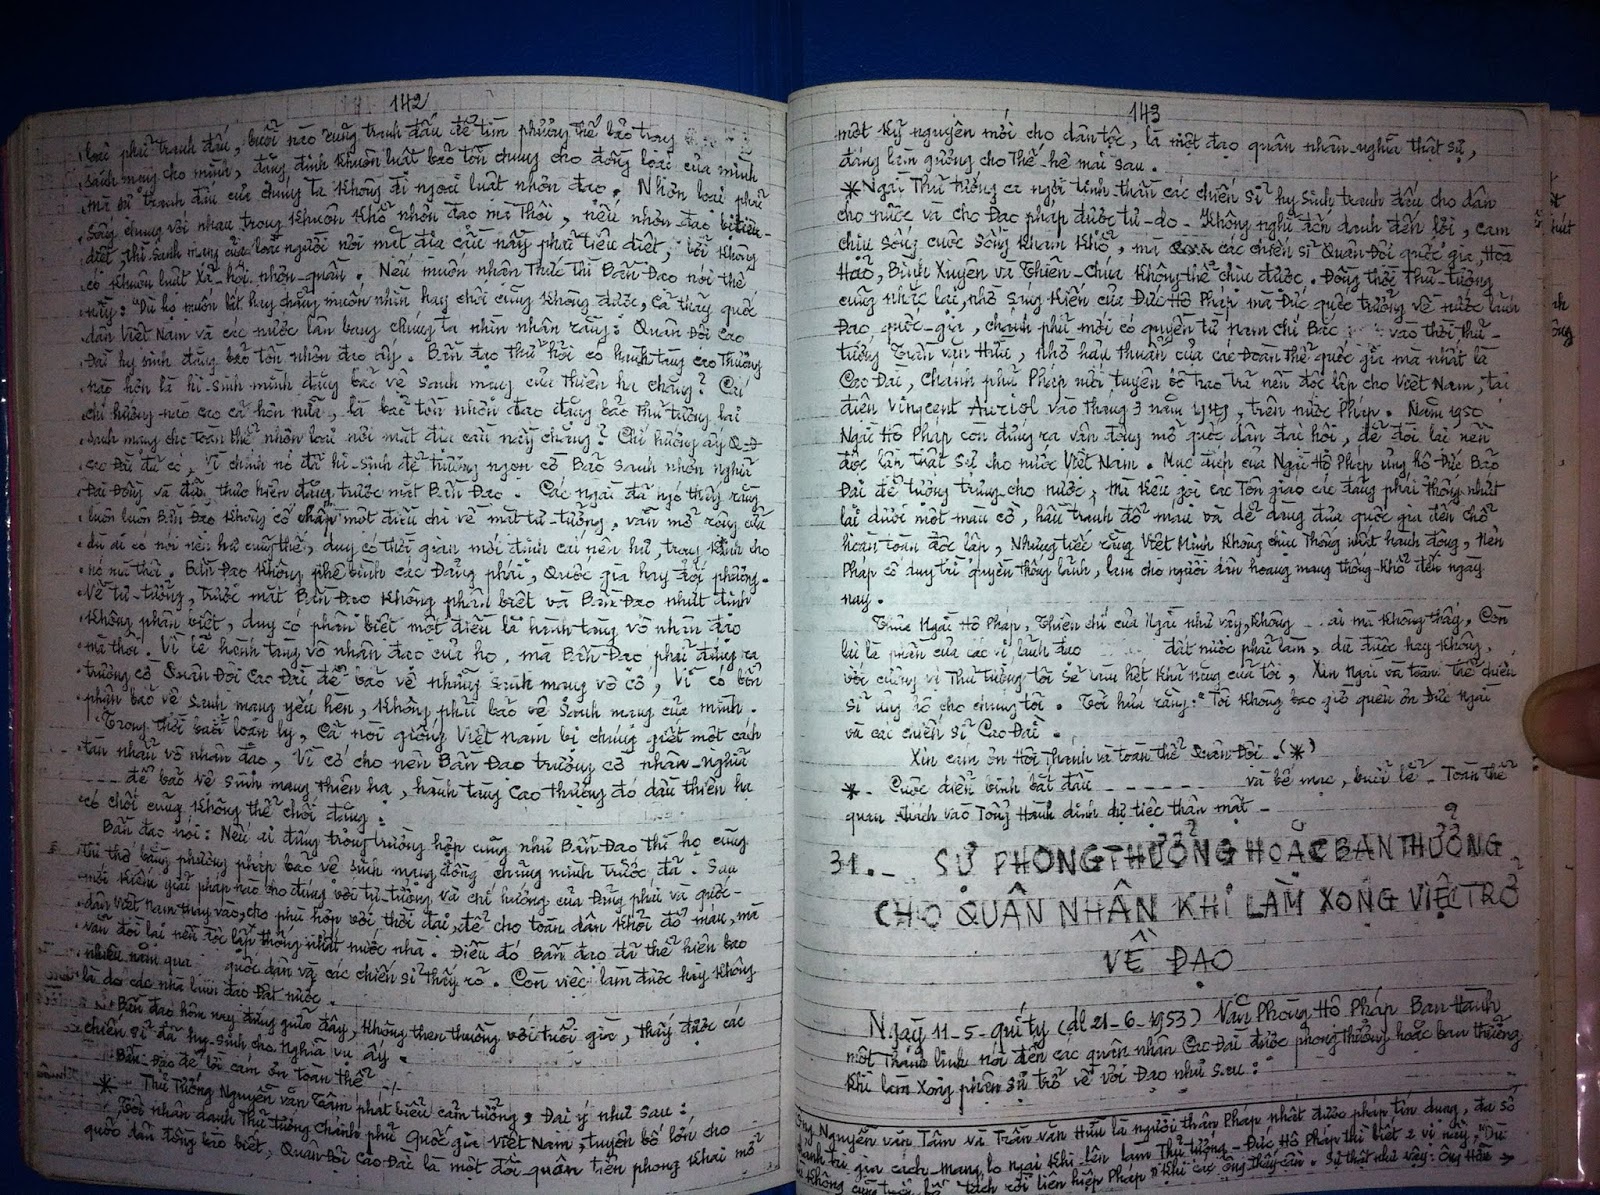 142
loài phải tranh đấu, buổi nào cũng tranh đấu để tìm phương thế bảo trọng
sanh mạng cho mình, đặng định khuôn luật bảo tồn chung cho đồng loại của mình
mà sự tranh đấu của chúng ta không đi ngoài luật nhơn đạo. Nhơn loại phải
sống chung với nhau trong khuôn khổ nhơn đạo mà thôi, nếu nhơn đạo bị tiêu
diệt, thì sanh mạng của loài người nơi mặt địa cầu nầy phải tiêu diệt, bởi không
có khuôn luật xã hội nhơn quần. Nếu muốn nhận thức thì Bần Đạo nói thế
nầy: "Dù họ muốn bắt hay chẳng muốn nhìn hay chối cũng không được, cả thảy quốc
dân Việt Nam và các nước lân bang chúng ta nhìn nhận rằng: Quân Đội Cao
Đài hy sinh đặng bảo tồn nhơn đạo ấy. Bần đạo thử hỏi có hành tàng cao thượng
nào hơn là hi-sinh mình đặng bảo vệ sanh mạng của thiên hạ chăng? Cái
chí hướng nào cao cả hơn nữa, là bảo tồn nhơn đạo đặng bảo thủ tương lai
sanh mạng cho toàn thể nhơn loại nơi mặt địa cầu nầy chăng? Chí hướng ấy Q-Đ
Cao Đài đã có, vì chính nó đã hi-sinh để trương ngọn cờ Bảo Sanh nhơn nghĩa
Đại Đồng và đã thực hiện đặng trước mắt Bần Đạo. Các ngài đã ngó thấy rằng
luôn luôn Bần Đạo không cố chấp một điều chi về mặt tư-tưởng, vẫn mở rộng cửa
dù ai có nói nên hư cũng thế, duy có thời gian mới định cái nên hư, trọng khinh cho
nó mà thôi. Bần Đạo không phê bình các Đảng phái, Quốc gia hay đối phương.
Về tư-tưởng, trước mắt Bần Đạo không phân biệt và Bần Đạo nhứt định
không phân biệt, duy có phân biệt một điều là hành tàng vô nhân đạo
mà thôi. Vì lẽ hành tàng vô nhân đạo của họ, mà Bần-Đạo phải đứng ra
trương cờ Quân Đội Cao Đài để bảo vệ những sanh mạng vô cố, vì có bổn
phận bảo vệ sanh mạng yếu hèn, không phải bảo vệ sanh mạng của mình.
Trong thời buổi loạn ly, cả nòi giống Việt Nam bị chúng giết một cách
tàn nhẫn vô nhân đạo, Vì cớ cho nên Bần Đạo trương cờ nhân-nghĩa
để bảo vệ sinh mạng thiên hạ, hành tàng cao thượng đó dầu thiên hạ
có chối cũng không thể chối đặng.
Bần đạo nói: Nếu ai đứng trong trường hợp cũng như Bần Đạo thì họ cũng
thi thố bằng phương pháp bảo vệ sinh mạng đồng chủng mình trước đã. Sau
mới kiếm giải pháp nào cho đúng với tư-tưởng và chí hướng của Đảng phái và quốc-
dân Việt Nam thay vào, cho phù hợp với thời đại, để cho toàn dân khỏi đổ máu, mà
vẫn đòi lại nền độc lập thống nhất nước nhà. Điều đó Bần đạo đã thể hiện bao
nhiêu năm qua quốc dân và các chiến sĩ thấy rõ. Còn việc làm được hay không
là do các nhà lãnh đạo Đất nước.
Bần đạo hôm nay đứng giữa đây, không thẹn thuồng với tuổi già, thấy được các
chiến sĩ đã hy-sinh cho nghĩa vụ ấy.
Bần-Đạo để lời cám ơn toàn thể
* Thủ Tướng Nguyễn văn Tâm phát biểu cảm tưởng, Đại ý như sau:
Tôi nhân danh Thủ tướng Chánh phủ Quốc gia Việt Nam, tuyên bố lớn cho
quốc dân đồng bào biết, Quân Đội Cao Đài là một đội quân tiên phong khai mở
143
một kỷ nguyên mới cho dân tộc, là một đạo quân nhân-nghĩa thật sự,
đáng làm gương cho thế-hệ mai sau.
* Ngài Thủ tướng ca ngợi tinh thần các chiến sĩ hy sinh tranh đấu cho dân
cho nước và cho Đạo pháp được tự-do - Không nghĩ đến danh đến lợi, cam
chịu sống cuộc sống kham khổ, mà các chiến sĩ Quân Đội Quốc gia, Hòa
Hảo, Bình Xuyên và Thiên-Chúa không thể chịu được. Đồng thời Thủ-tướng
cũng nhắc lại, nhờ sáng kiến của Đức Hộ Pháp mà Đức quốc trưởng về nước lãnh
Đạo quốc-gia, chánh phủ mới có quyền từ nam chí Bắc vào thời thủ-
tướng Trần văn Hữu, nhờ hậu thuẫn của các đoàn thể quốc gia mà nhất là
Cao Đài, chánh phủ Pháp mới tuyên bố trao trả nền độc lập cho Việt Nam, tại
điện Vingcent Auriol vào tháng 3 năm 1949, trên nước Pháp. Năm 1950
Ngài Hộ Pháp còn đứng ra vận động mở quốc dân đại hội, để đòi lại nền
độc lập thật sự cho nước Việt Nam. Mục đích của Ngài Hộ Pháp ủng hộ Đức Bảo
Đại để tượng trưng cho nước, mà kêu gọi các Tôn giáo các đảng phái thống nhứt
lại dưới một màu cờ, hầu tranh đổ máu và dễ dàng đưa quốc gia đến chỗ
hoàn toàn độc lập, Nhưng tiếc rằng Việt Minh không chịu thống nhứt hành động, Nên
Pháp cố duy trì quyền thống lãnh, làm cho người dân hoang mang thống-khổ đến ngày
nay.
Thưa Ngài Hộ Pháp, Thiện chí của Ngài như vậy, không ai mà không thấy, Còn
lại là phần của các vị lãnh đạo đất nước phải làm, dù được hay không,
với cương vị Thủ tướng tôi sẽ làm hết khả năng của tôi, Xin Ngài và toàn thể chiến
sĩ ủng hộ cho chúng tôi. Tôi hứa rằng: "Tôi không bao giờ quên ơn Đức Ngài
và các chiến sĩ Cao Đài.
Xin cám ơn Hội Thánh và toàn thể Quân Đội. (*)
* - Cuộc diễn binh bắt đầu _ _ _ _ _ và bế mạc, buổi lễ - Toàn thể
quan khách vào Tổng Hành dinh dự tiệc thân mật -
31._ SỰ PHONG THƯỞNG HOẶC BAN THƯỞNG
CHO QUÂN NHÂN KHI LÀM XONG VIỆC TRỞ
VỀ ĐẠO
Ngày 11-5-quí tỵ (dl 21-6-1953) Văn Phòng Hộ Pháp Ban Hành
một Thánh lịnh nói đến các quân nhân Cao Đài được phong thưởng hoặc ban thưởng
khi làm xong phận sự trở về với Đạo như sau:
Ông Nguyễn văn Tâm và Trần văn Hữu là người thân Pháp nhất được pháp tín dụng, đa số
lo ngại khi lên làm Thủ tướng - Đức Hộ Pháp thì biết 2 vị nầy, "Dù
tách rời liên hiệp Pháp" khi các ông thấy cần. Sự thật như vậy: Ông Hữu →